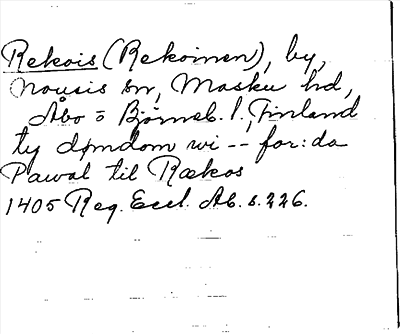 Rekois (Rekoinen), by,
Nousis sn, Masku hd,
Åbo o Björneb. l. Finland
ty dømdom wi -- for: da
Pawal til Rækos
1405 Reg. Eccl. Ab. s. 226.